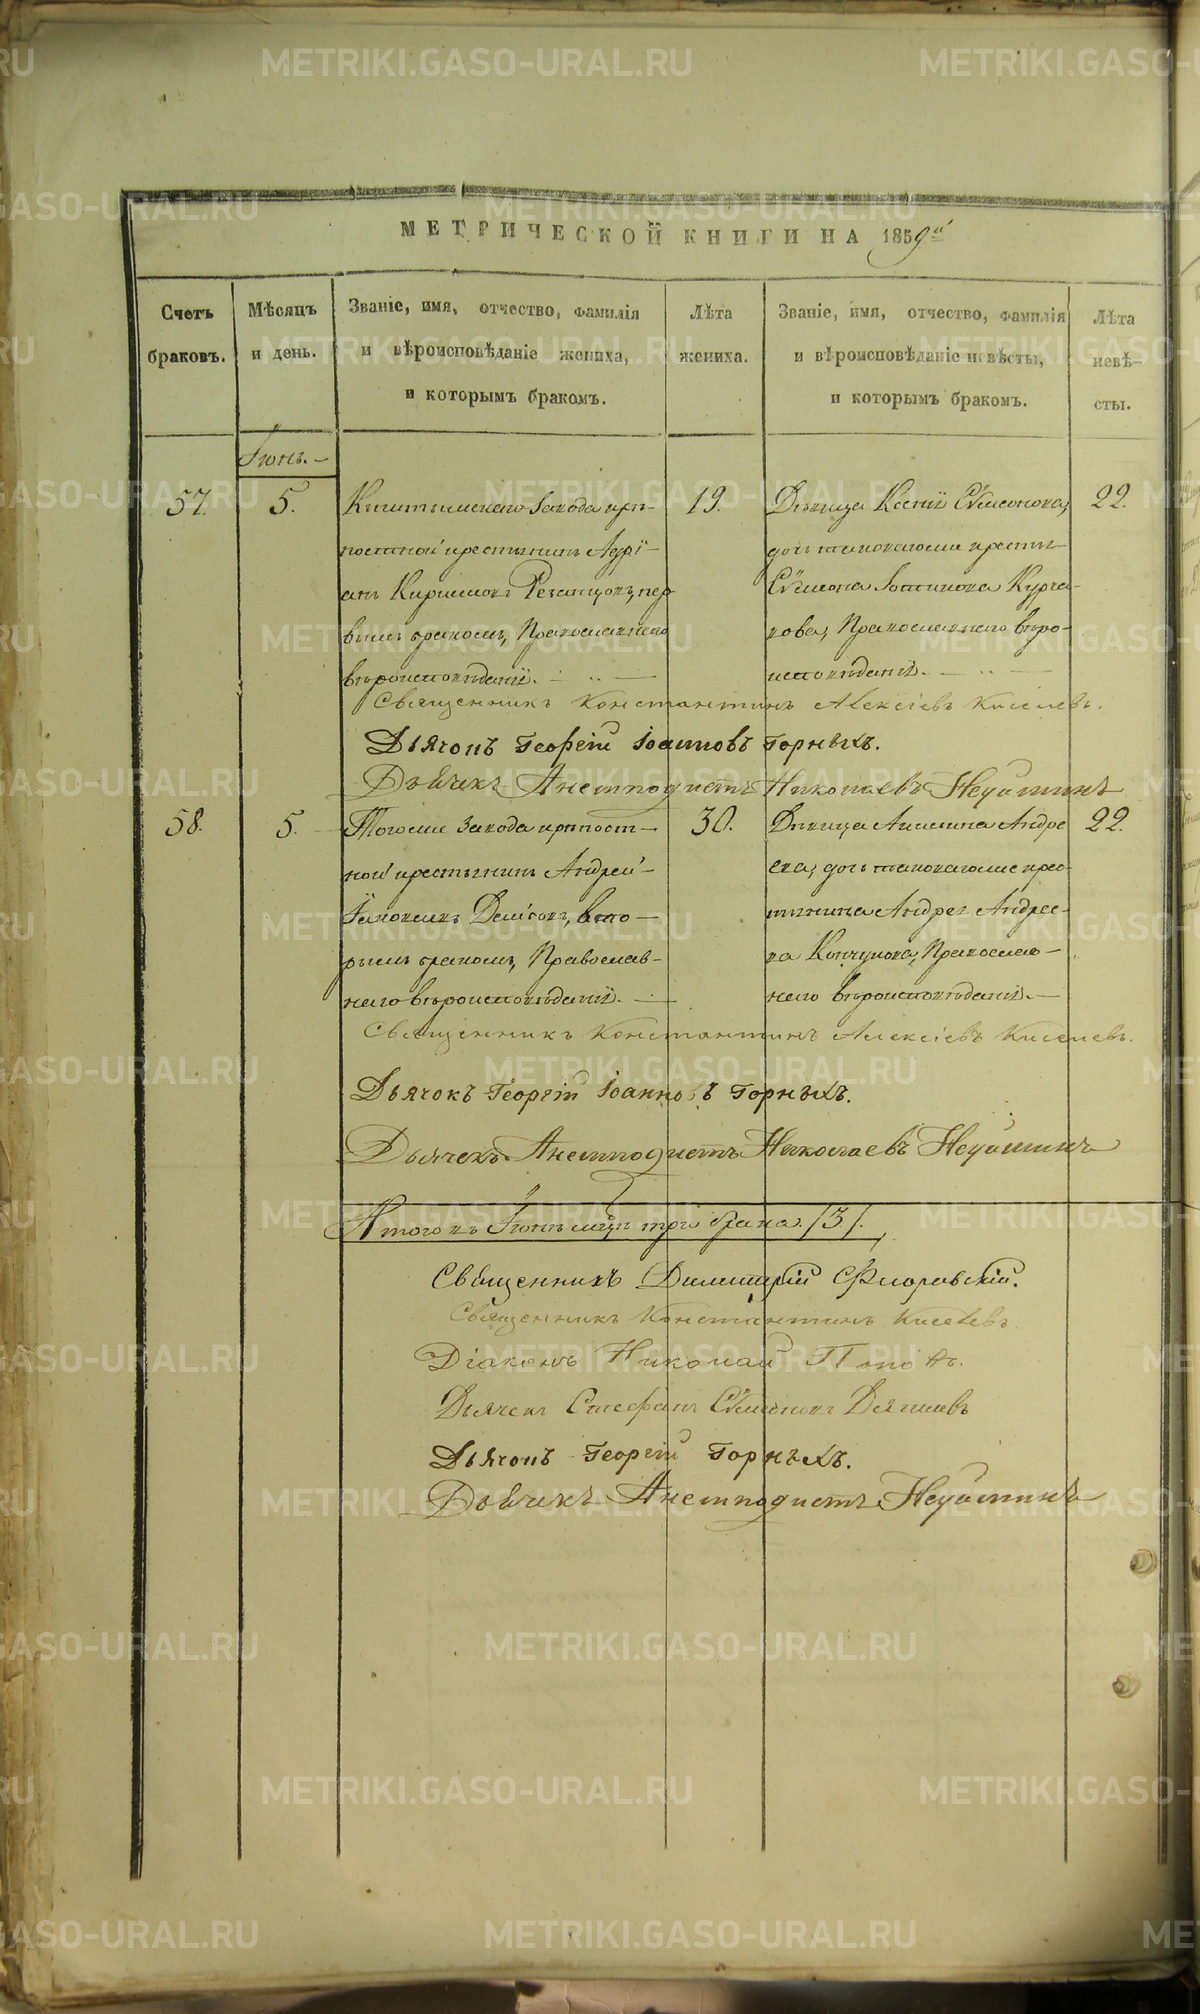 МЕТРИЧЕСКОЙ КНИГИ НА 1859й
Счетъ браковъ.
Мѣсяцъ и день.
Званіе, имя, отчество, фамилія и вѣроисповѣданіе жениха, и которымъ бракомъ.
Лѣта жениха.
Званіе, имя, отчество, фамилія и вѣроисповѣданіе невѣсты, и которымъ бракомъ.
Лѣта невѣ-сты.
Іюнь.
57.
5.
Кыштымскаго завода крѣ-
постной крестьянинъ Адрі-
анъ Кириловъ Резанцовъ, пер
вымъ бракомъ, Православнаго
вѣроисповѣданія.
19.
Дѣвица Ксенія Сѵмеонова,
дочь таковагоже крестья
Сѵмеона Курча-
кова, Православнаго вѣро-
исповѣданія.
22.
Священникъ Константинъ Алексіевъ Киселевъ.
Дьячокъ Георгій Іоанновъ Горныхъ.
Дьячекъ Анемподистъ Николаевъ Неуйминъ
58.
5.
Тогоже завода крѣпост-
ной крестьянинъ Андрей
Іаковлевъ Денисовъ, вто-
рымъ бракомъ, Православ-
наго вѣроисповѣданія.
30.
Дѣвица Андре
ева, дочь таковагоже крес-
тьянина Андрея Андрее-
ва Православ-
наго вѣроисповѣданія.
22.
Священникъ Константинъ Алексіевъ Киселевъ.
Дьячокъ Георгій Іоанновъ Горныхъ.
Дьячекъ Анемподистъ Николаевъ Неуйминъ
Итого въ Іюнѣ мцѣ три брака /3/.
Священникъ Димитрій Флоровскій.
Священникъ Константинъ Киселевъ
Діаконъ Николай Поповъ.
Дьячекъ Стефанъ Сѵмеоновъ
Дьячокъ Георгій Горныхъ.
Дьячекъ Анемподистъ Неуйминъ
METRIKI.GASO-URAL.RU